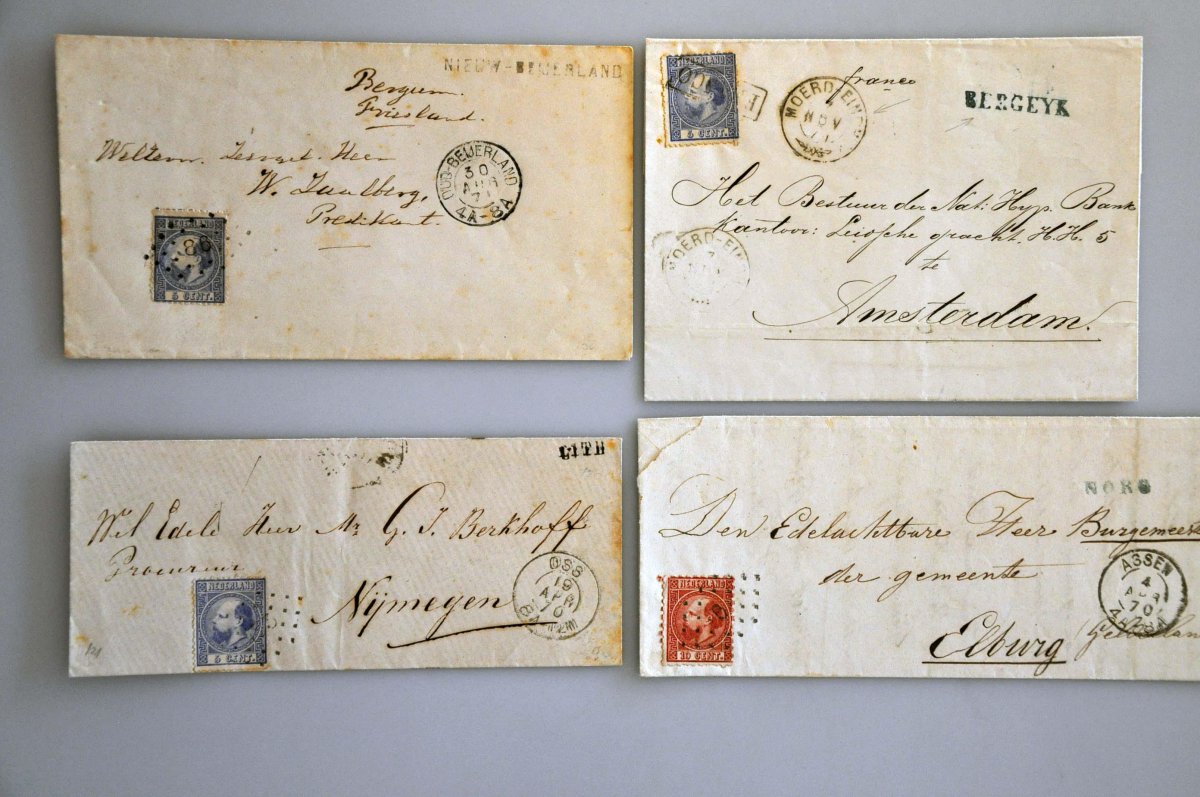 NIEUW-BEIJERLAND
Bergum
Friesland.
OUD-BEIJERLAND
30
71
4A-8A
Welterw. Heer
W. Zaalberg,
Predikant.
5 CENT.
NEDERLAND
FRANCO
5 CENT.
MOERD-EIND
NOV
71
franco
BERGEYK
Het Bestuur der Nat: Hyp. Bank
Kantoor: Leidsche gracht H.H. 5
te
Amsterdam.
MOERD-EIN
LITH
Wel Edele Heer Mr G. J. Berkhoff
Procureur
Nijmegen
OSS
19
APR
70
NEDERLAND
5 CENT.
NORG
Den Edelachtbare Heer Burgemeest
der gemeente
Elburg
(Gelderlan
ASSEN
4
APR
70
NEDERLAND
10 CENT.